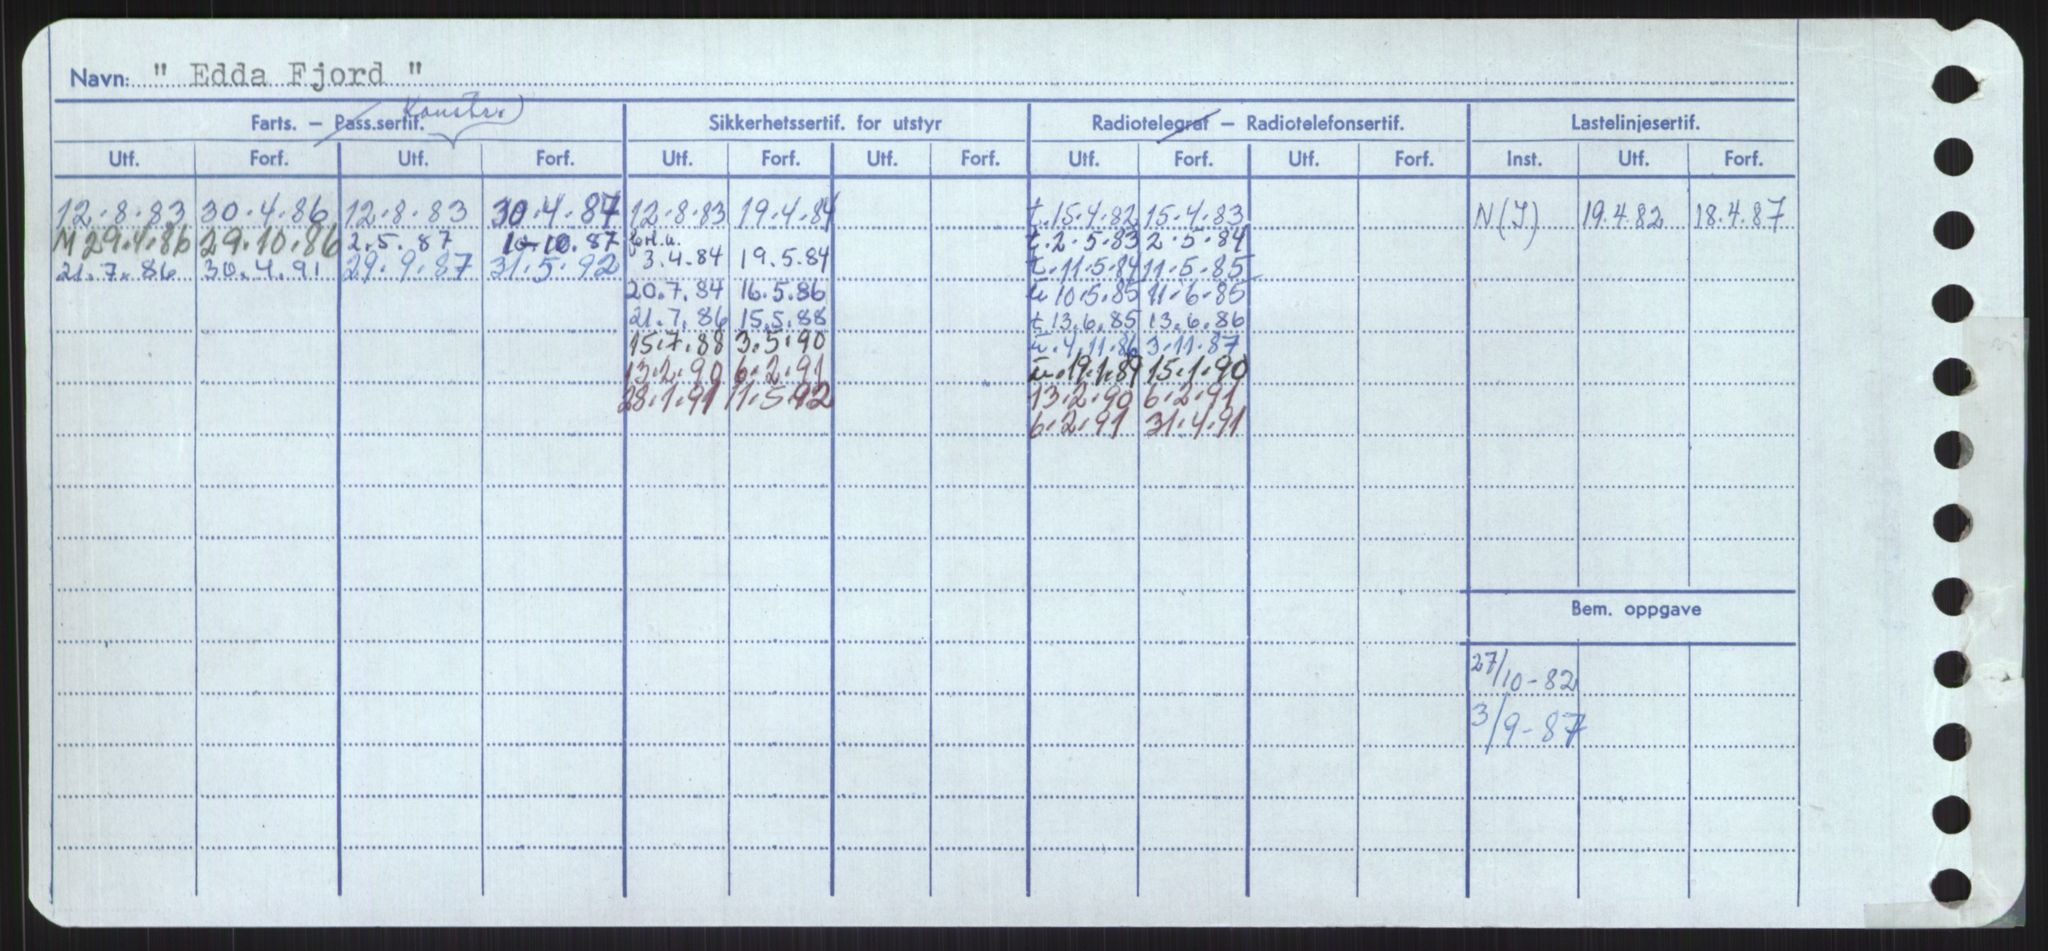 Navn: " Edda Fjord "
Konstr.
Farts. — Pass.sertif. Sikkerhetssertif. for utstyr Radiotelegraf — Radiotelefonsertif. Lastelinjesertif.
Utf. Forf. Utf. Forf. Utf. Forf. Utf. Forf. Utf. Forf. Utf. Forf. Inst. Utf. Forf.
12.8.83 30.4.86 12.8.83 30.4.87 12.8.83 19.4.84 t.15.4.82 15.4.83 N(I) 19.4.82 18.4.87
M 29.4.86 29.10.86 2.5.87 10.87 forl.u. t.2.5.83 2.5.84
21.7.86 30.4.91 29.9.87 31.5.92 3.4.84 19.5.84 t.11.5.84 11.5.85
20.7.84 16.5.86 u 10.5.85 11.6.85
21.7.86 15.5.88 t 13.6.85 13.6.86
15.7.88 3.5.90 u.4.11.86 3.11.87
13.2.90 6.2.91 u.19.1.89 15.1.90
28.1.91 11.5.92 13.2.90 6.2.91
6.2.91 31.4.91
Bem. oppgave
27/10-82
3/9-87